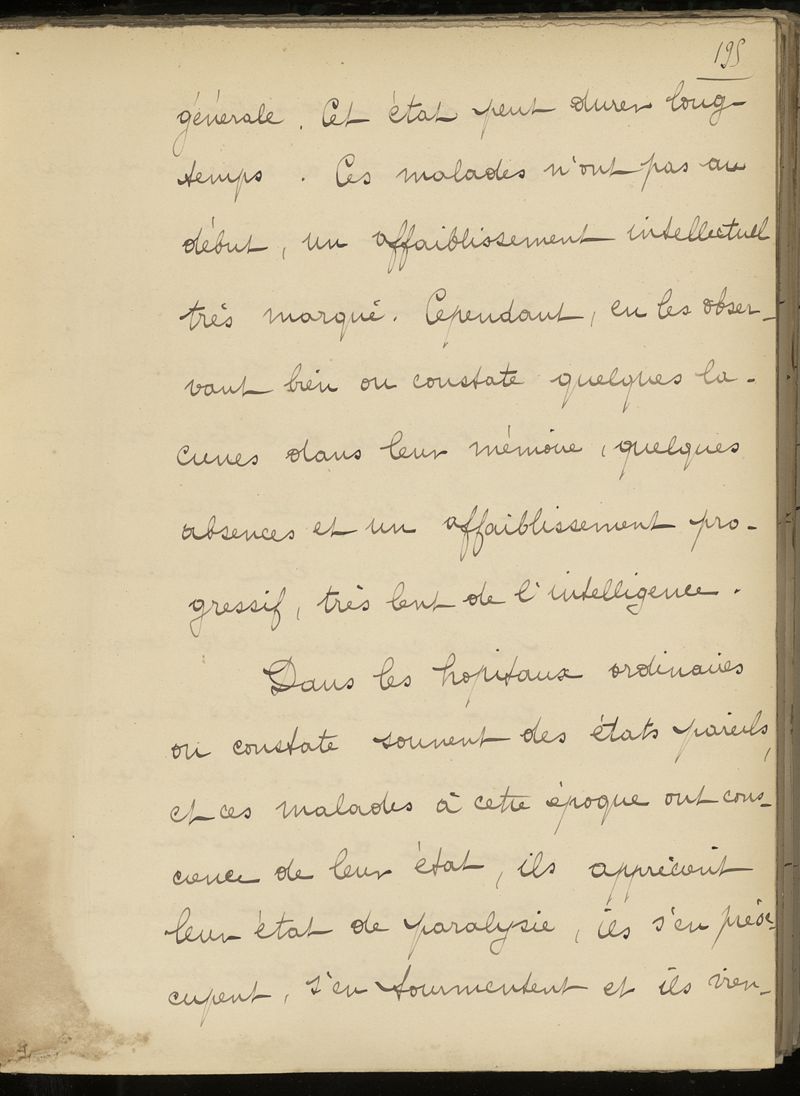 195
générale. Cet état peut durer long-
temps. Ces malades n'ont pas au
début, un affaiblissement intellectuel
très marqué. Cependant, en les obser-
vant bien on constate quelques la-
cunes dans leur mémoire, quelques
absences et un affaiblissement pro-
gressif, très lent de l'intelligence.
Dans les hopitaux ordinaires
on constate souvent des états pareils,
et ces malades à cette époque ont cons-
cience de leur état, ils apprécient
leur état de paralysie, ils s'en préoc-
cupent, s'en tourmentent et ils vien-